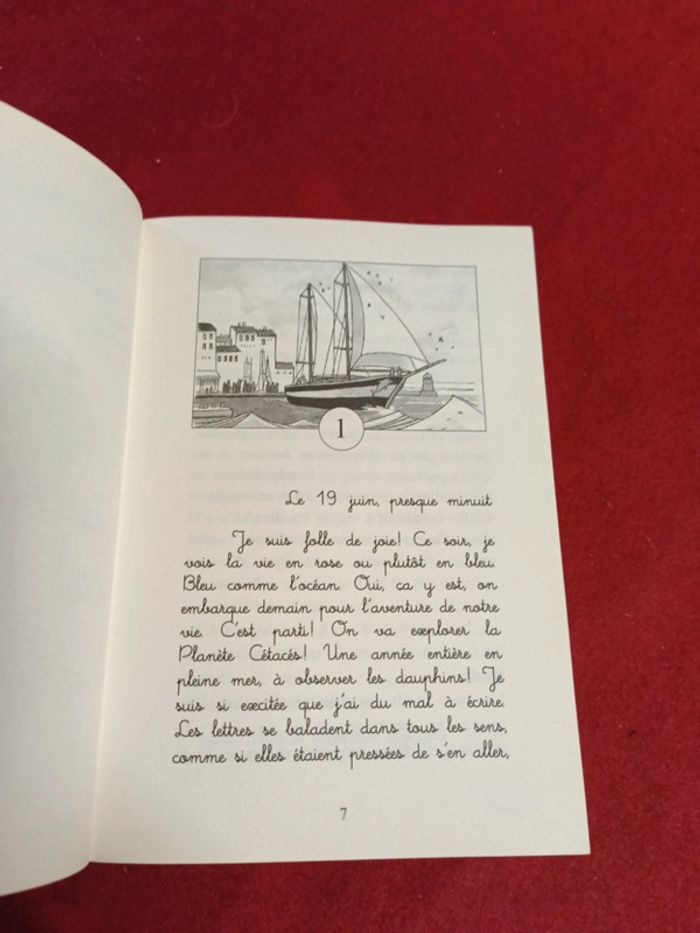 1
Le 19 juin, presque minuit
Je suis folle de joie! Ce soir, je
vois la vie en rose ou plutôt en bleu.
Bleu comme l'océan. Oui, ca y est, on
embarque demain pour l'aventure de notre
vie. C'est parti! On va explorer la
Planète Cétacés! Une année entière en
pleine mer, à observer les dauphins! Je
suis si excitée que j'ai du mal à écrire.
Les lettres se baladent dans tous les sens,
comme si elles étaient pressées de s'en aller,
7